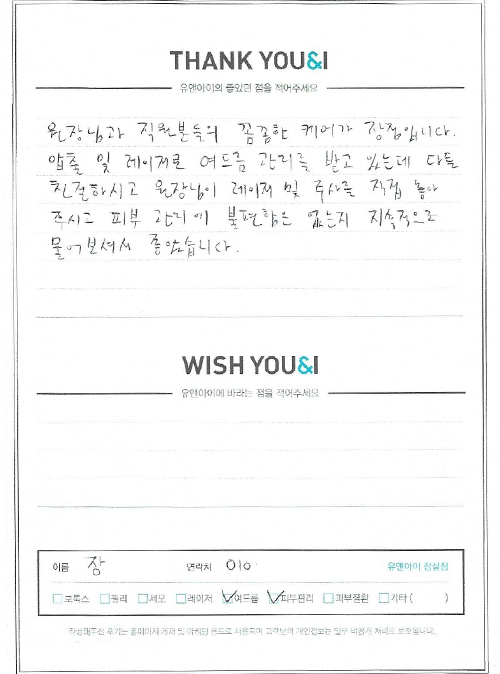 THANK YOU&I
유앤아이의 좋았던 점을 적어주세요
원장님과 직원분들의 꼼꼼한 케어가 장점입니다.
압출 및 레이저로 여드름 관리를 받고 있는데 다들
친절하시고 원장님이 레이저 및 주사를 직접 놓아
주시고 피부 관리에 불편함은 없는지 지속적으로
물어보셔서 좋았습니다.
WISH YOU&I
유앤아이에 바라는 점을 적어주세요
이름 장 연락처 010 유앤아이 잠실점
보톡스 필러 제모 레이저 여드름 피부관리 피부질환 기타 ( )
작성해주신 후기는 홈페이지 게재 및 마케팅 용도로 사용되며 고객님의 개인정보는 일부 비공개 처리로 보호됩니다.